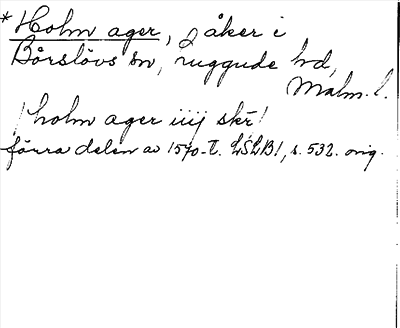 *Holm ager, åker i
Bårslövs sn, Luggude hd,
Malm. l.
/holm ager iiij skr/
förra delen av 1570-t. LSLB1, s. 532. orig.